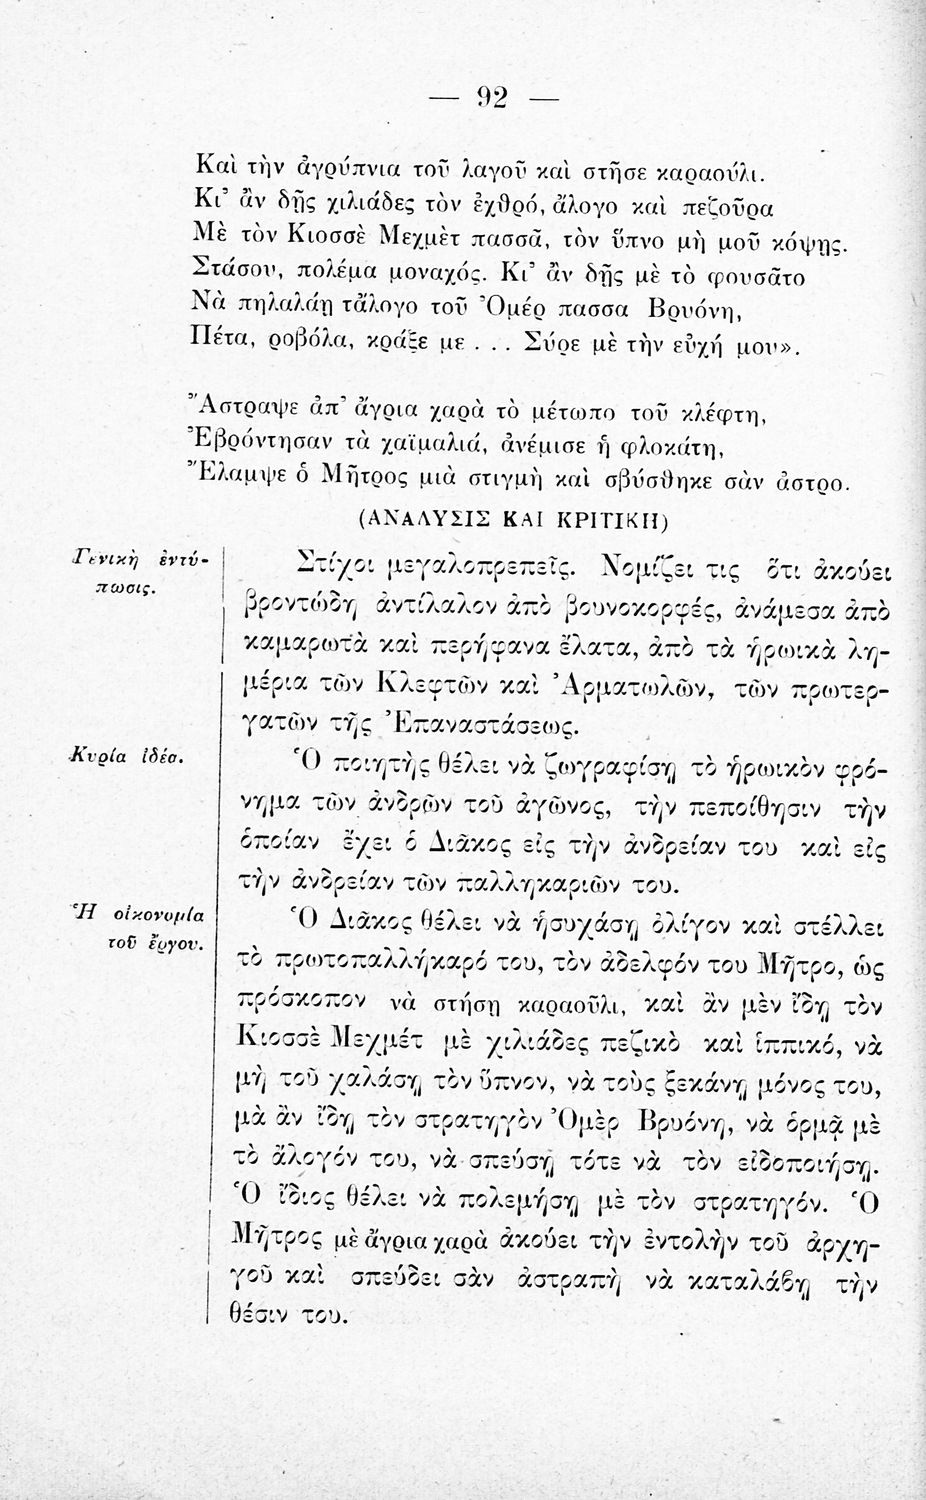 — 92 —
Καὶ τὴν ἀγρύπνια τοῦ λαγοῦ καὶ στῆσε καραούλι.
Κι’ ἂν δῇς χιλιάδες τὸν ἐχθρό, ἄλογο καὶ πεζοῦρα
Μὲ τὸν Κιοσσὲ Μεχμὲτ πασσᾶ, τὸν ὕπνο μὴ μοῦ κόψῃς.
Στάσου, πολέμα μοναχός. Κι’ ἂν δῇς μὲ τὸ φουσᾶτο
Νὰ πηλαλάῃ τἄλογο τοῦ Ὀμέρ πασσα Βρυόνη,
Πέτα, ροβόλα, κράξε με . . . Σύρε μὲ τὴν εὐχή μου».
Ἄστραψε ἀπ’ ἄγρια χαρὰ τὸ μέτωπο τοῦ κλέφτη,
Ἐβρόντησαν τὰ χαϊμαλιά, ἀνέμισε ἡ φλοκάτη,
Ἔλαμψε ὁ Μῆτρος μιὰ στιγμὴ καὶ σβύσθηκε σὰν ἄστρο.
(ΑΝΑΛΥΣΙΣ ΚΑΙ ΚΡΙΤΙΚΗ)
Γενικὴ ἐντύ-
πωσις.
Στίχοι μεγαλοπρεπεῖς. Νομίζει τις ὅτι ἀκούει
βροντώδη ἀντίλαλον ἀπὸ βουνοκορφές, ἀνάμεσα ἀπὸ
καμαρωτὰ καὶ περήφανα ἔλατα, ἀπὸ τὰ ἡρωικὰ λη-
μέρια τῶν Κλεφτῶν καὶ Ἀρματωλῶν, τῶν πρωτερ-
γατῶν τῆς Ἐπαναστάσεως.
Κυρία ἰδέα.
Ὁ ποιητὴς θέλει νὰ ζωγραφίσῃ τὸ ἡρωικὸν φρό-
νημα τῶν ἀνδρῶν τοῦ ἀγῶνος, τὴν πεποίθησιν τὴν
ὁποίαν ἔχει ὁ Διᾶκος εἰς τὴν ἀνδρείαν του καὶ εἰς
τὴν ἀνδρείαν τῶν παλληκαριῶν του.
Ἡ οἰκονομία
τοῦ ἔργου.
Ὁ Διᾶκος θέλει νὰ ἡσυχάσῃ ὀλίγον καὶ στέλλει
τὸ πρωτοπαλλήκαρό του, τὸν ἀδελφόν του Μῆτρο, ὡς
πρόσκοπον νὰ στήσῃ καραοῦλι, καὶ ἂν μὲν ἴδῃ τὸν
Κιοσσὲ Μεχμέτ μὲ χιλιάδες πεζικὸ καὶ ἱππικό, νὰ
μὴ τοῦ χαλάσῃ τὸν ὕπνον, νὰ τοὺς ξεκάνῃ μόνος του,
μὰ ἂν ἴδῃ τὸν στρατηγὸν Ὀμὲρ Βρυόνη, νὰ ὁρμᾷ μὲ
τὸ ἄλογόν του, νὰ σπεύσῃ τότε νὰ τὸν εἰδοποιήσῃ.
Ὁ ἴδιος θέλει νὰ πολεμήσῃ μὲ τὸν στρατηγόν. Ὁ
Μῆτρος μὲ ἄγρια χαρὰ ἀκούει τὴν ἐντολὴν τοῦ ἀρχη-
γοῦ καὶ σπεύδει σὰν ἀστραπὴ νὰ καταλάβῃ τὴν
θέσιν του.